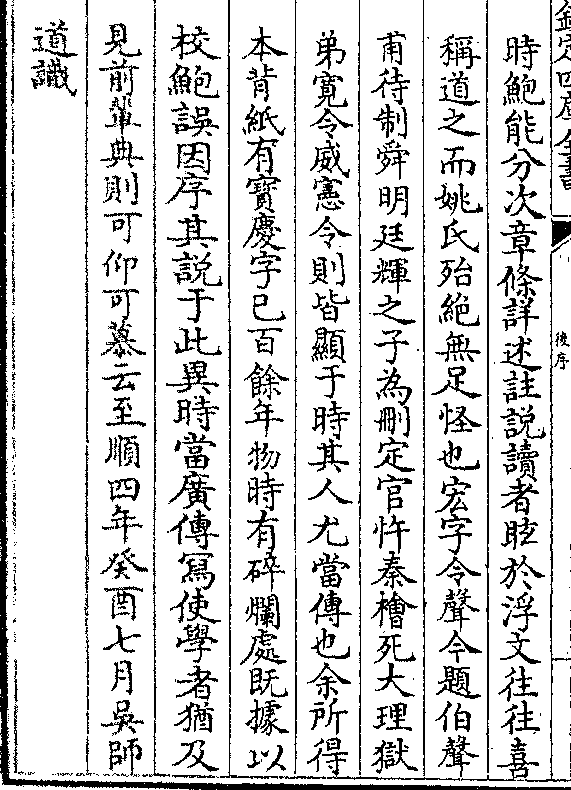 欽定四庫全書
後序
時鮑能分次章條詳述註説讀者眩於浮文往往喜
稱道之而姚氏殆絶無足怪也宏字令聲今題伯聲
甫待制舜明廷輝之子為刪定官忤秦檜死大理獄
弟寛令威憲令則皆顯于時其人尤當傳也余所得
本背紙有寳慶字已百餘年物時有碎爛處既據以
校鮑誤因序其説于此異時當廣傳寫使學者猶及
見前輩典則可仰可慕云至順四年癸酉七月吳師
道識